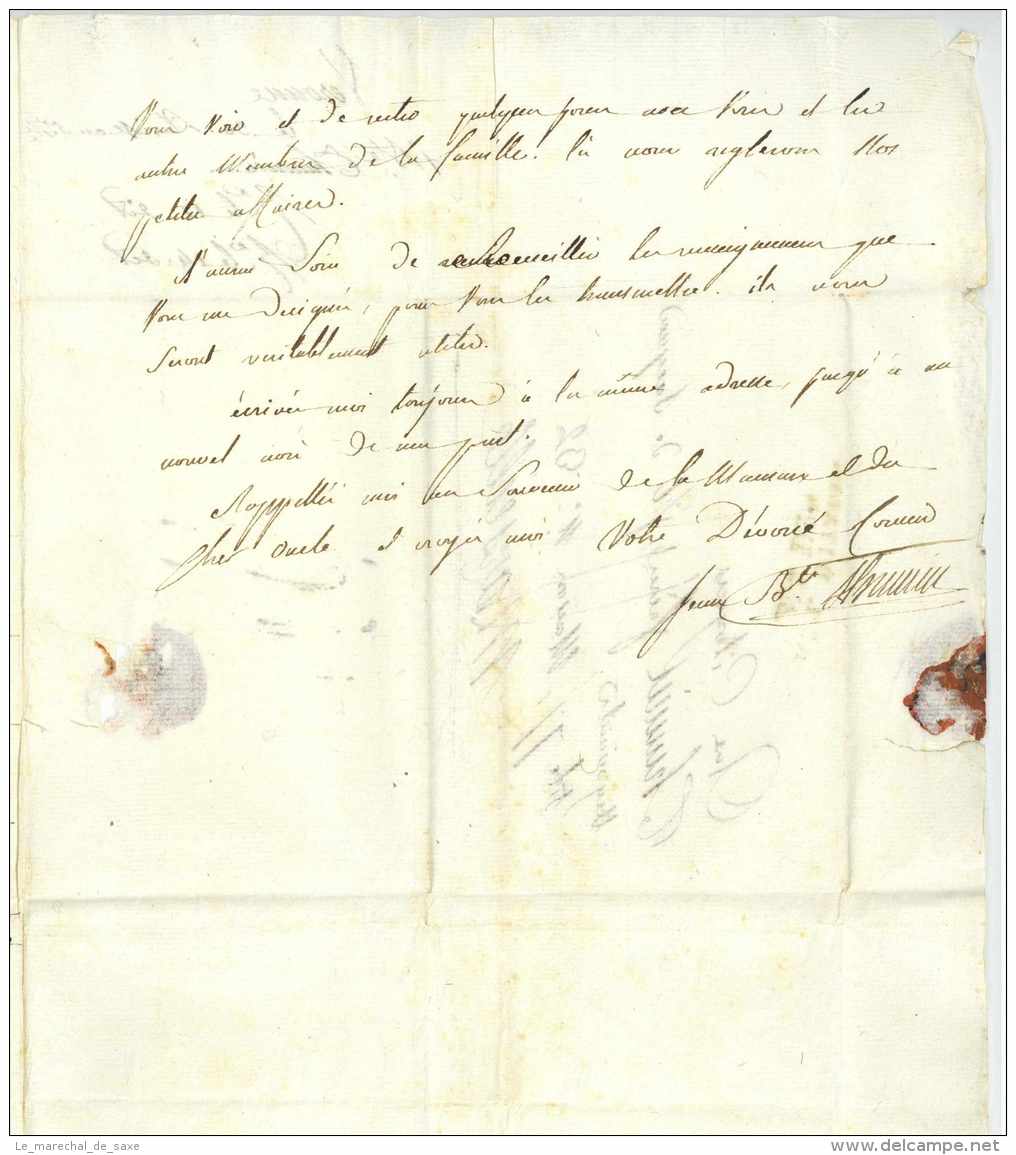 Vous voir et de rester quelques jours avec vous et les
autres Membres de la famille. là nous reglerons Nos
petites affaires.
J'aurai Soin de recueillir les renseignemens que
Vous me designés, pour vous les transmettre. ils vous
Seront veritablement utiles.
écrivés moi toujours à la même adresse, jusqu'à un
nouvel avis de ma part.
Rappellés moi au Souvenir de la Maman et du
Cher oncle et croyés moi Votre Dévoué Cousin
Jean Bte
Le_marechal_de_saxe
www.delcampe.net